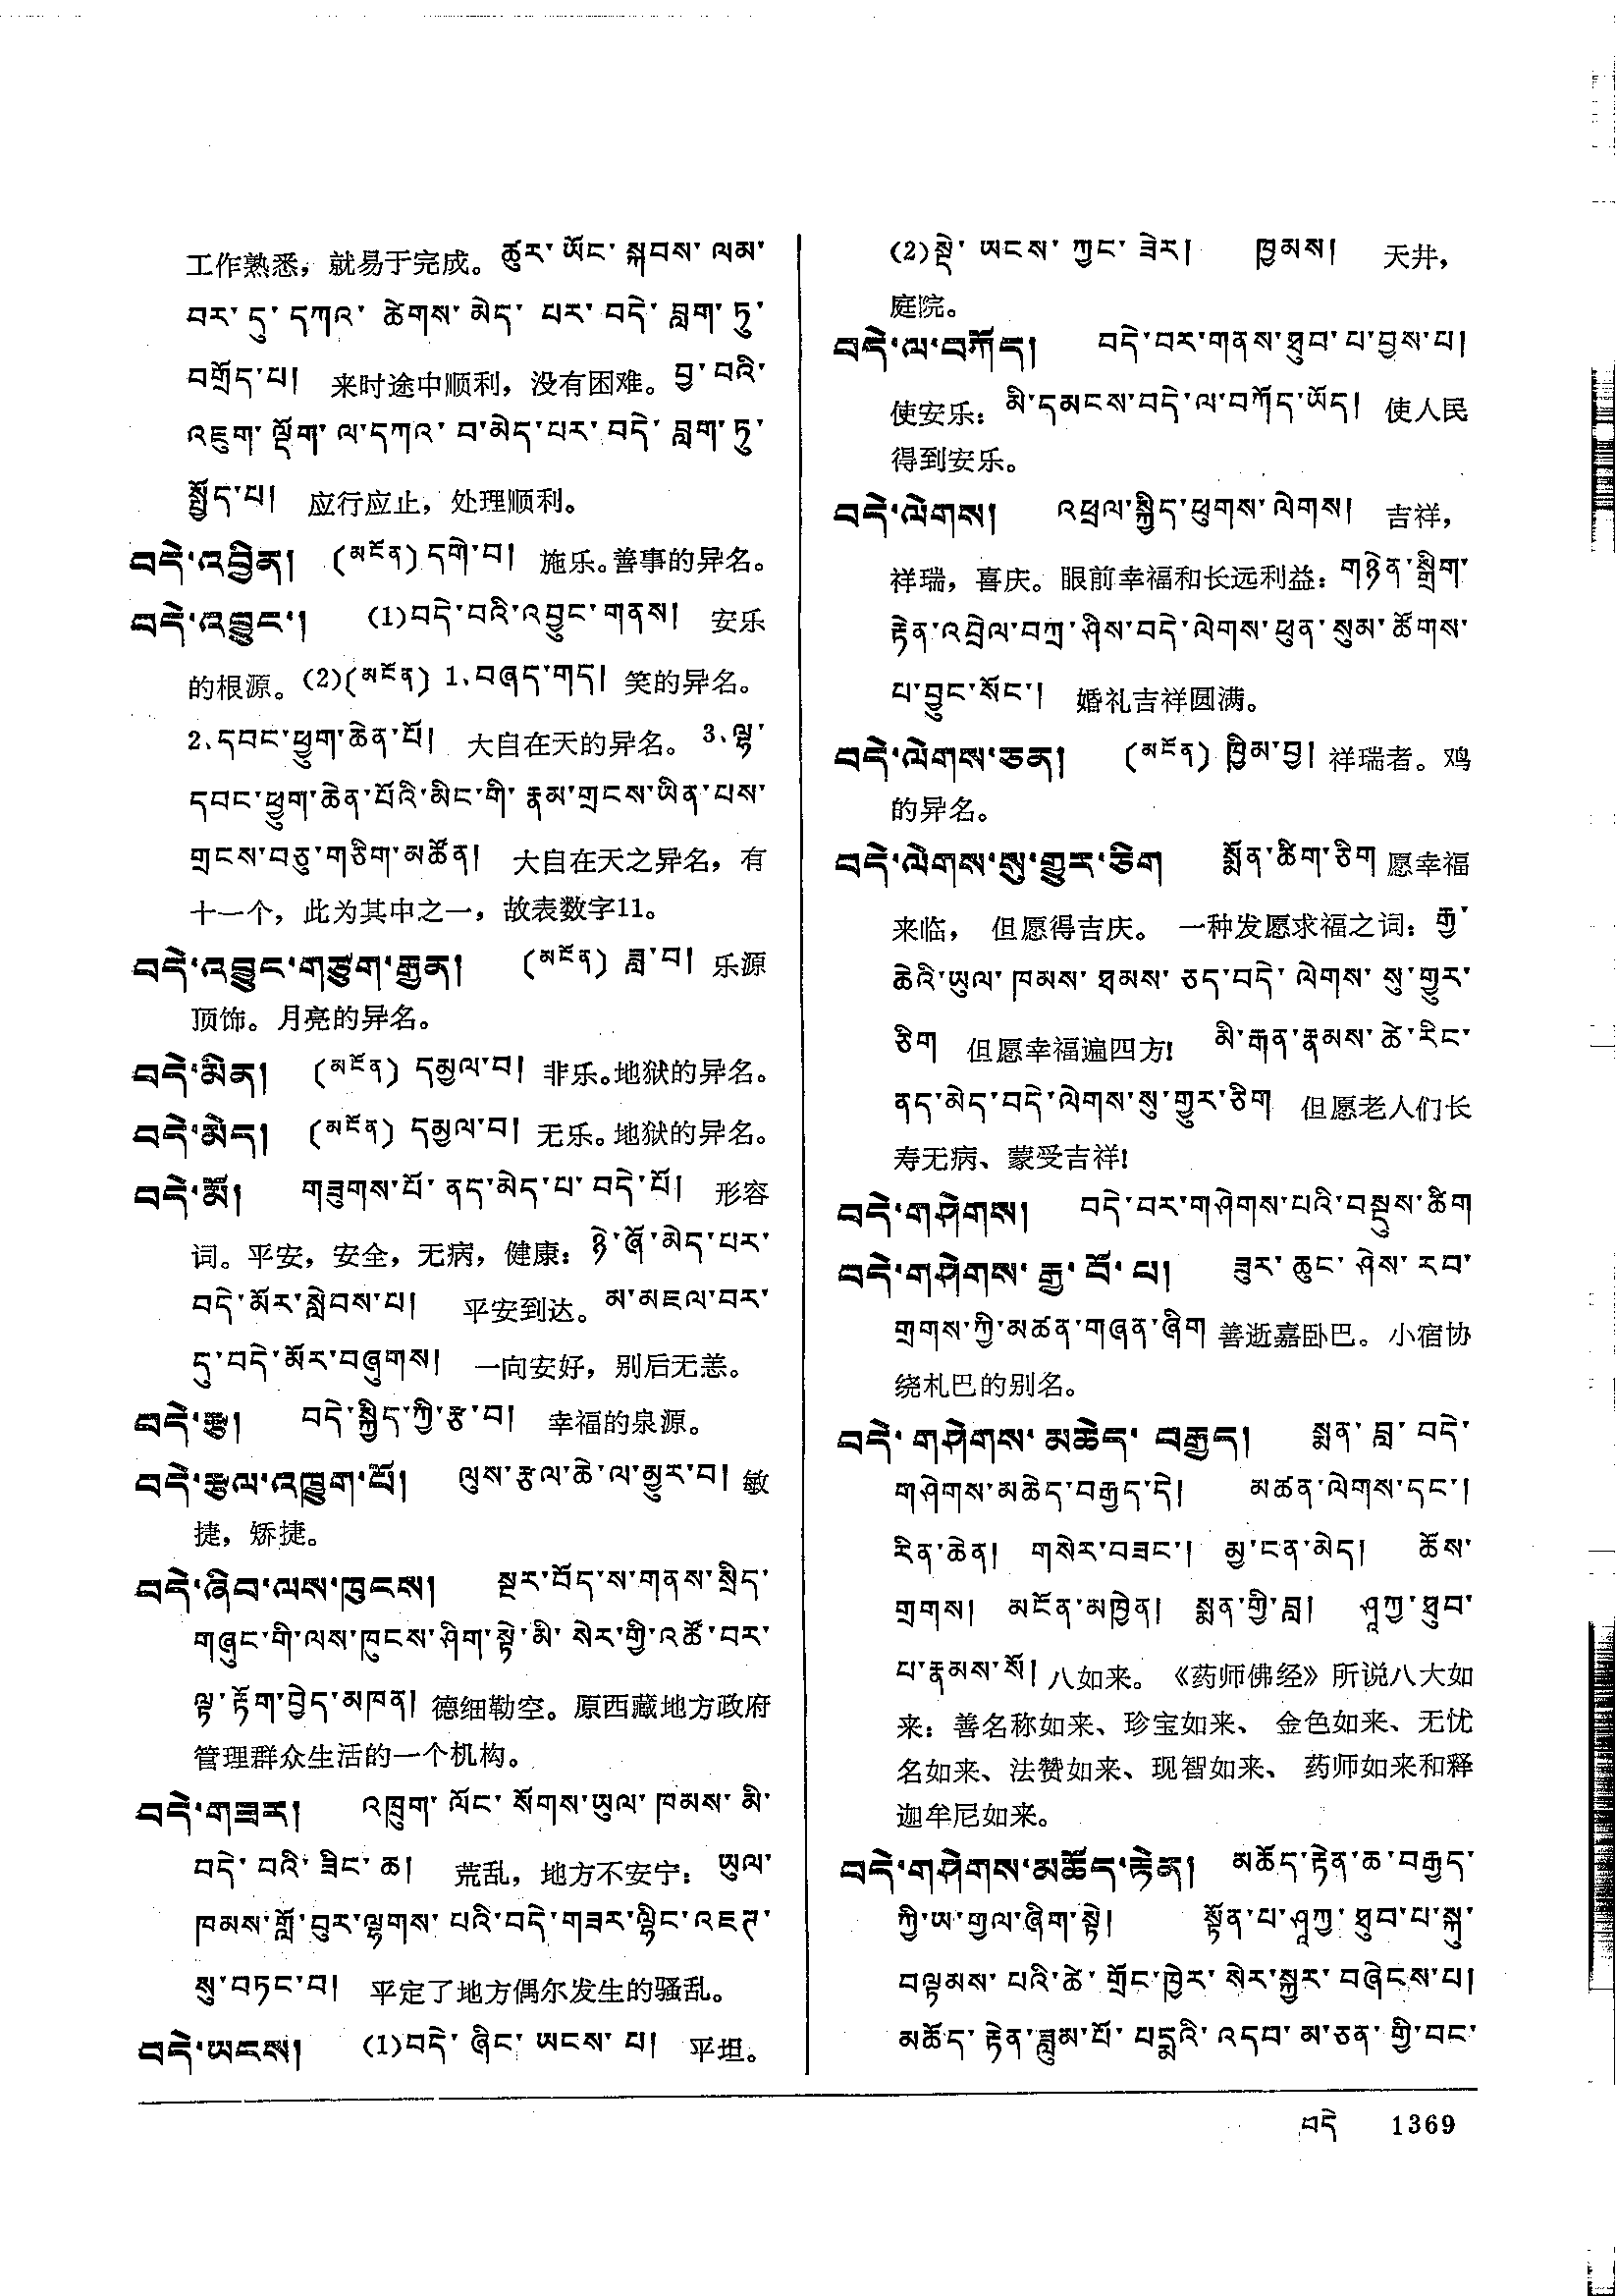 工作熟悉，就易于完成。ཚུར་ཡོང་སྐབས་ལམ་
བར་དུ་དཀའ་ཚེགས་མེད་པར་བདེ་བླག་ཏུ་
བགྲོད་པ། 来时途中顺利，没有困难。བྱ་བའི་
འཇུག་ལྡོག་ལ་དཀའ་བ་མེད་པར་བདེ་བླག་ཏུ་
སྤྱོད་པ། 应行应止，处理顺利。
བདེ་འབྱིན། (མངོན) དགེ་བ། 施乐。善事的异名。
བདེ་འབྱུང་། (1)བདེ་བའི་འབྱུང་གནས། 安乐
的根源。(2)(མངོན) 1、བཞད་གད། 笑的异名。
2、དབང་ཕྱུག་ཆེན་པོ། 大自在天的异名。3、ལྷ་
དབང་ཕྱུག་ཆེན་པོའི་མིང་གི་རྣམ་གྲངས་ཡིན་པས་
གྲངས་བཅུ་གཅིག་མཚོན། 大自在天之异名，有
十一个，此为其中之一，故表数字11。
བདེ་འབྱུང་གཙུག་རྒྱན། (མངོན) ཟླ་བ། 乐源
顶饰。月亮的异名。
བདེ་མིན། (མངོན) དམྱལ་བ། 非乐。地狱的异名。
བདེ་མེད། (མངོན) དམྱལ་བ། 无乐。地狱的异名。
བདེ་མོ། གཟུགས་པོ་ནད་མེད་པ་བདེ་པོ། 形容
词。平安，安全，无病，健康：ཉེ་ཞོ་མེད་པར་
བདེ་མོར་སླེབས་པ། 平安到达。མ་མཇལ་བར་
དུ་བདེ་མོར་བཞུགས། 一向安好，别后无恙。
བདེ་རྩ། བདེ་སྐྱིད་ཀྱི་རྩ་བ། 幸福的泉源。
བདེ་རྩལ་འཁྱུག་པོ། ལུས་རྩལ་ཆེ་ལ་མྱུར་བ། 敏
捷，矫捷。
བདེ་ཞིབ་ལས་ཁུངས། སྔར་བོད་ས་གནས་སྲིད་
གཞུང་གི་ལས་ཁུངས་ཤིག་སྟེ་མི་སེར་གྱི་འཚོ་བར་
ལྟ་རྟོག་བྱེད་མཁན། 德细勒空。原西藏地方政府
管理群众生活的一个机构。
བདེ་གཟར། འཁྲུག་ལོང་སོགས་ཡུལ་ཁམས་མི་
བདེ་བའི་ཟིང་ཆ། 荒乱，地方不安宁：ཡུལ་
ཁམས་གློ་བུར་ལྷགས་པའི་བདེ་གཟར་ལྷིང་འཇགས་
སུ་བཏང་བ། 平定了地方偶尔发生的骚乱。
བདེ་ཡངས། (1)བདེ་ཞིང་ཡངས་པ། 平坦。
(2)སྡེ་ཡངས་ཀྱང་ཟེར། ཁྱམས། 天井，
庭院。
བདེ་ལ་བཀོད། བདེ་བར་གནས་ཐུབ་པ་བྱས་པ།
使安乐：མི་དམངས་བདེ་ལ་བཀོད་ཡོད། 使人民
得到安乐。
བདེ་ལེགས། འཕྲལ་སྐྱིད་ཕུགས་ལེགས། 吉祥，
祥瑞，喜庆。眼前幸福和长远利益：གཉེན་སྒྲིག་
རྟེན་འབྲེལ་བཀྲ་ཤིས་བདེ་ལེགས་ཕུན་སུམ་ཚོགས་
པ་བྱུང་སོང་། 婚礼吉祥圆满。
བདེ་ལེགས་ཅན། (མངོན) ཁྱིམ་བྱ། 祥瑞者。鸡
的异名。
བདེ་ལེགས་སུ་གྱུར་ཅིག སྨོན་ཚིག་ཅིག 愿幸福
来临，但愿得吉庆。一种发愿求福之词：རྒྱ་
ཆེའི་ཡུལ་ཁམས་ཐམས་ཅད་བདེ་ལེགས་སུ་གྱུར་
ཅིག 但愿幸福遍四方! མི་རྒན་རྣམས་ཚེ་རིང་
ནད་མེད་བདེ་ལེགས་སུ་གྱུར་ཅིག 但愿老人们长
寿无病、蒙受吉祥!
བདེ་གཤེགས། བདེ་བར་གཤེགས་པའི་བསྡུས་ཚིག
བདེ་གཤེགས་རྒྱ་བོ་པ། ཟུར་ཆུང་ཤེས་རབ་
གྲགས་ཀྱི་མཚན་གཞན་ཞིག 善逝嘉卧巴。小宿协
绕札巴的别名。
བདེ་གཤེགས་མཆེད་བརྒྱད། སྨན་བླ་བདེ་
གཤེགས་མཆེད་བརྒྱད་དེ། མཚན་ལེགས་དང་།
རིན་ཆེན། གསེར་བཟང་། མྱ་ངན་མེད། ཆོས་
གྲགས། མངོན་མཁྱེན། སྨན་གྱི་བླ། ཤཱཀྱ་ཐུབ་
པ་རྣམས་སོ། 八如来。《药师佛经》所说八大如
来：善名称如来、珍宝如来、金色如来、无忧
名如来、法赞如来、现智如来、药师如来和释
迦牟尼如来。
བདེ་གཤེགས་མཆོད་རྟེན། མཆོད་རྟེན་ཆ་བརྒྱད་
ཀྱི་ཡ་གྱལ་ཞིག་སྟེ། སྟོན་པ་ཤཱཀྱ་ཐུབ་པ་སྐུ་
བལྟམས་པའི་ཚེ་གྲོང་ཁྱེར་སེར་སྐྱར་བཞེངས་པ།
མཆོད་རྟེན་ཟླུམ་པོ་པདྨའི་འདབ་མ་ཅན་གྱི་བང་
བདེ 1369